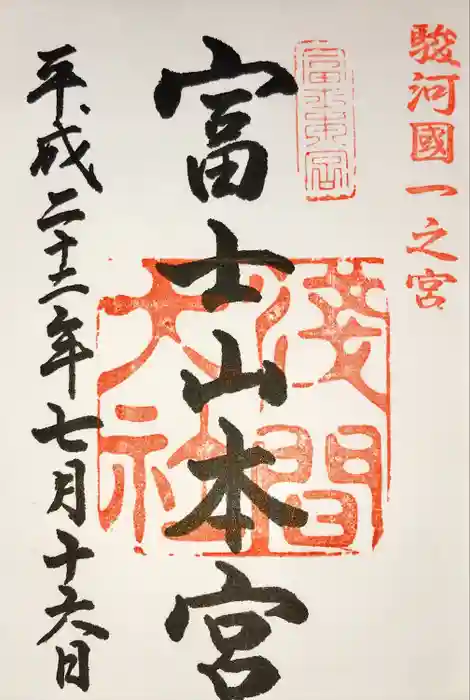 駿河國一之宮
富士本宮
富士山本宮
淺間
大社
平成二十二年七月十六日